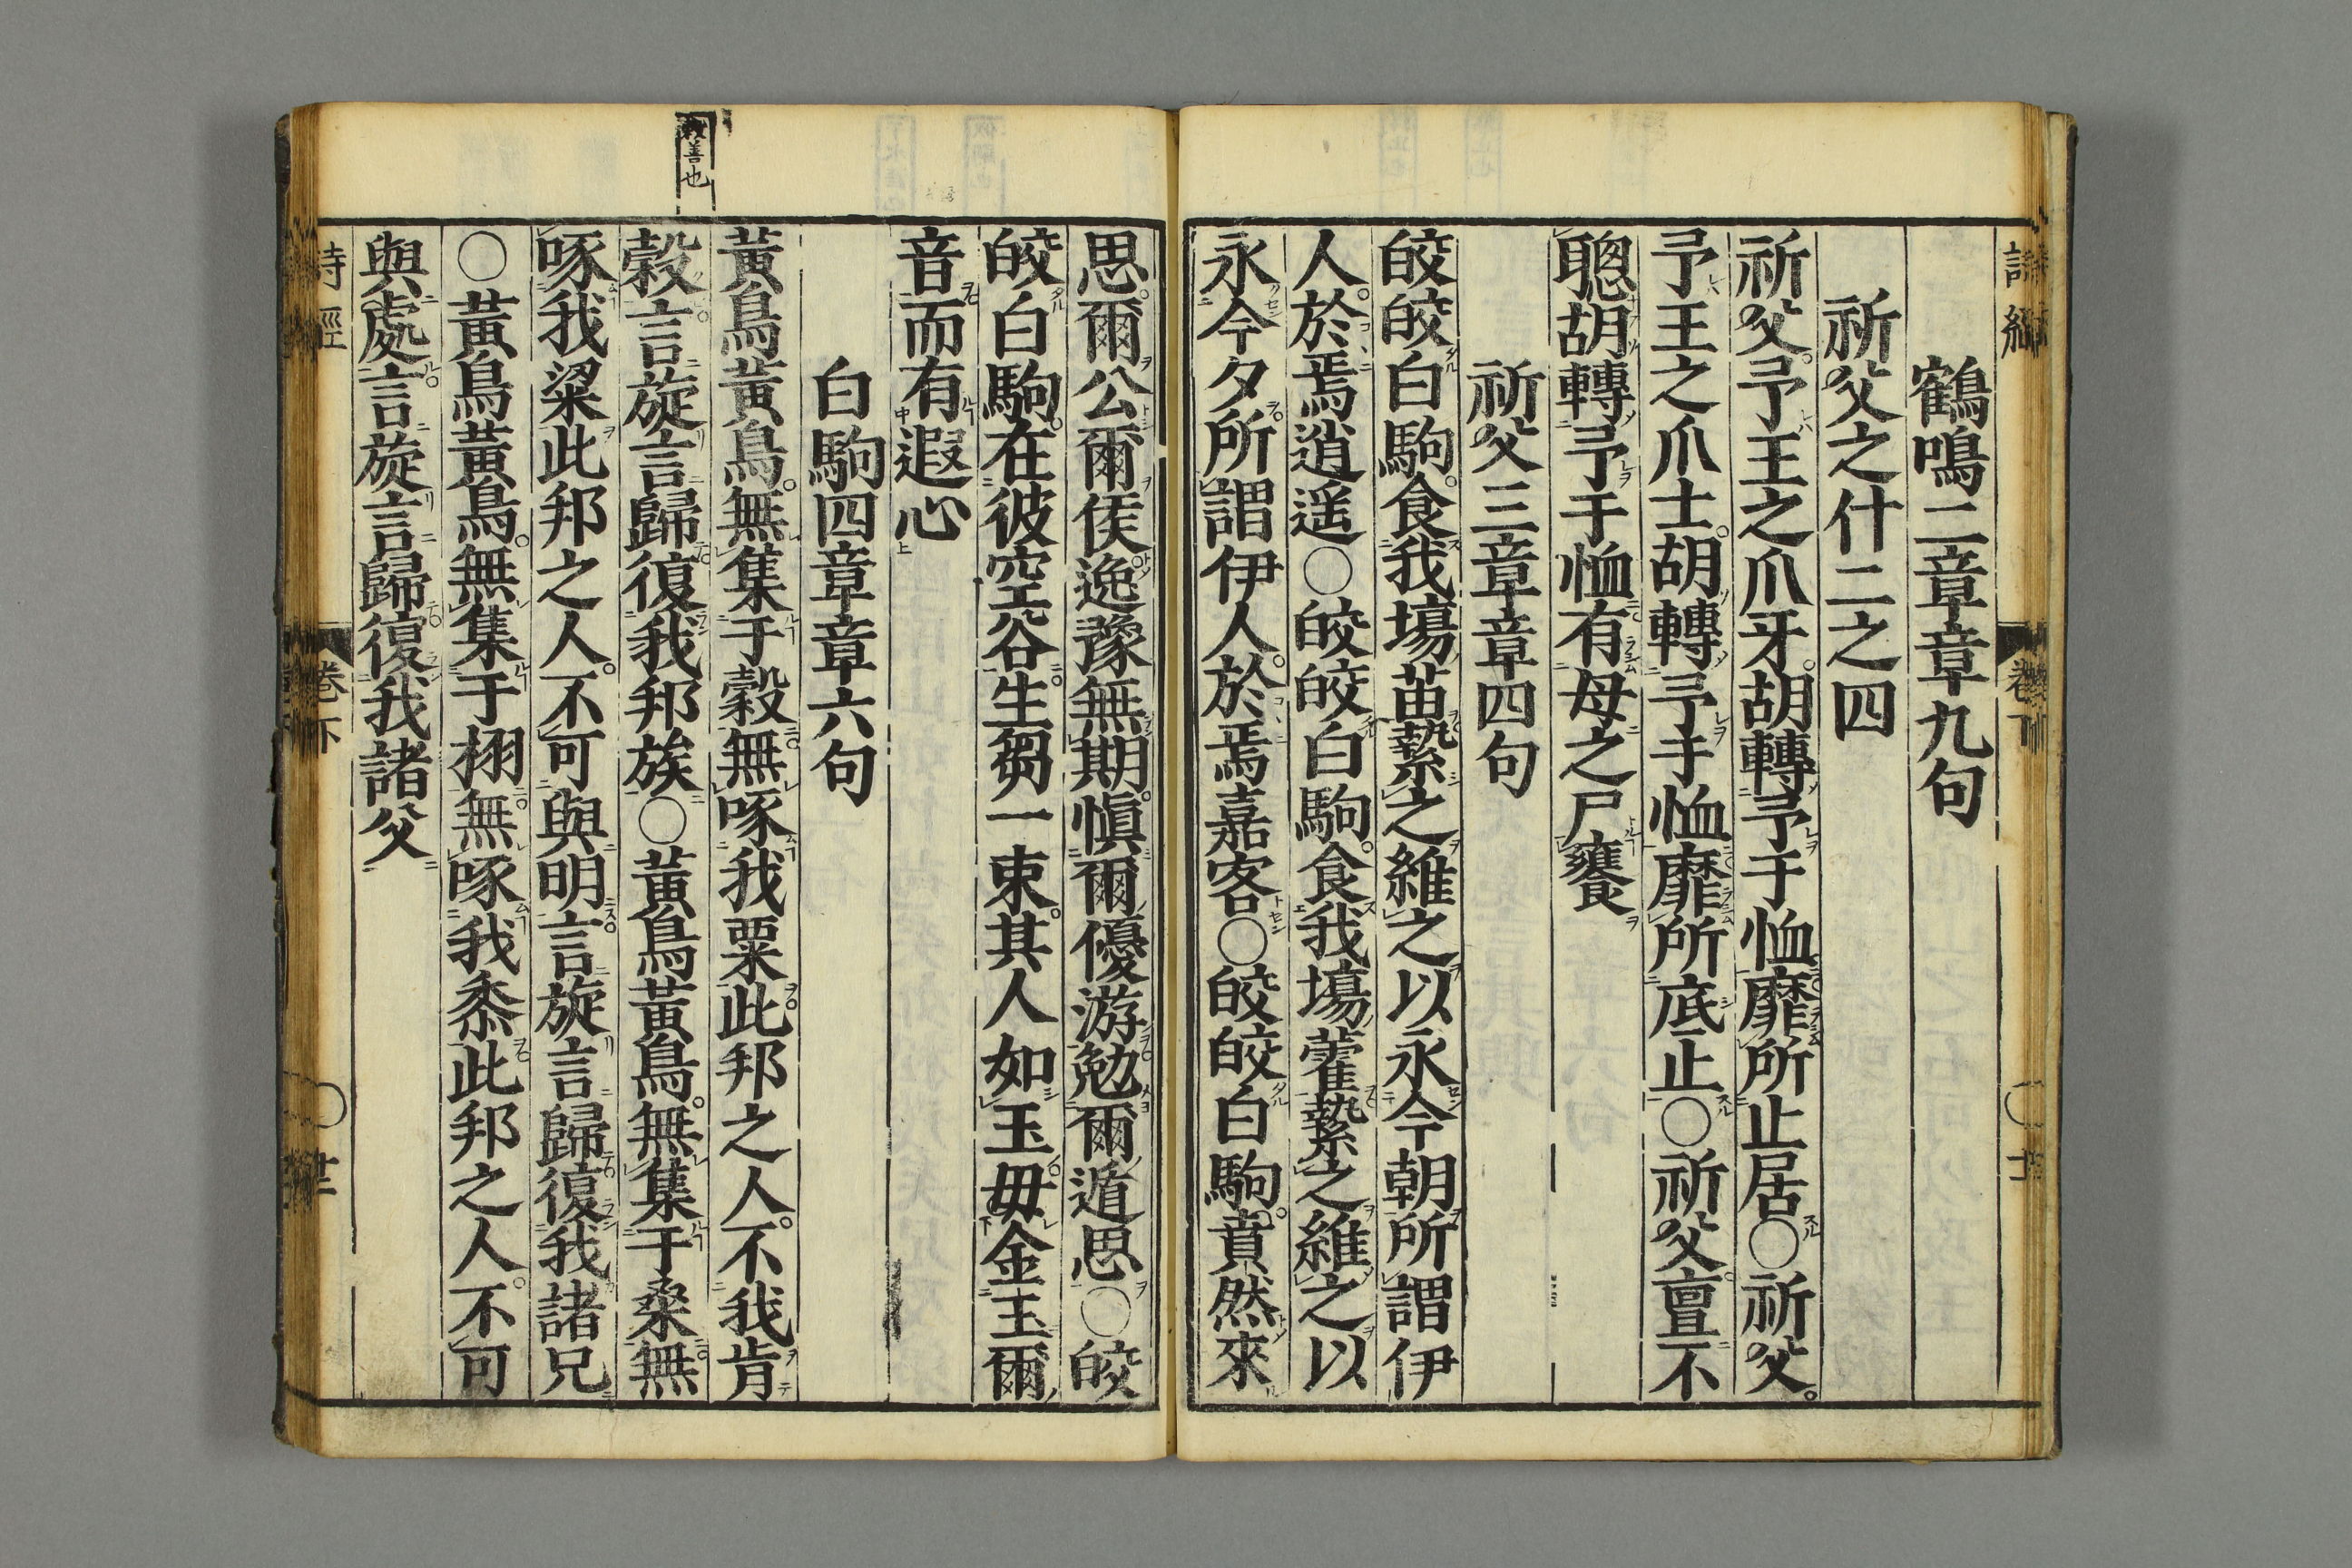 鶴鳴二章章九句
祈父之什二之四
祈父予王之爪牙胡轉予于恤靡所止居○祈父
予王之爪士胡轉予于恤靡所底止○祈父亶不
聰胡轉予于恤有母之尸饔
祈父三章章四句
皎皎白駒食我場苗縶之維之以永今朝所謂伊
人於焉逍遥○皎皎白駒食我場藿縶之維之以
永今夕所謂伊人於焉嘉客○皎皎白駒賁然來
思爾公爾侯逸豫無期慎爾優游勉爾遁思○皎
皎白駒在彼空谷生芻一束其人如玉毋金玉爾
音而有遐心
白駒四章章六句
黃鳥黃鳥無集于榖無啄我粟此邦之人不我肯
穀言旋言歸復我邦族○黃鳥黃鳥無集于桑無
啄我粱此邦之人不可與明言旋言歸復我諸兄
○黃鳥黃鳥無集于栩無啄我黍此邦之人不可
與處言旋言歸復我諸父
穀善也
詩經 卷下